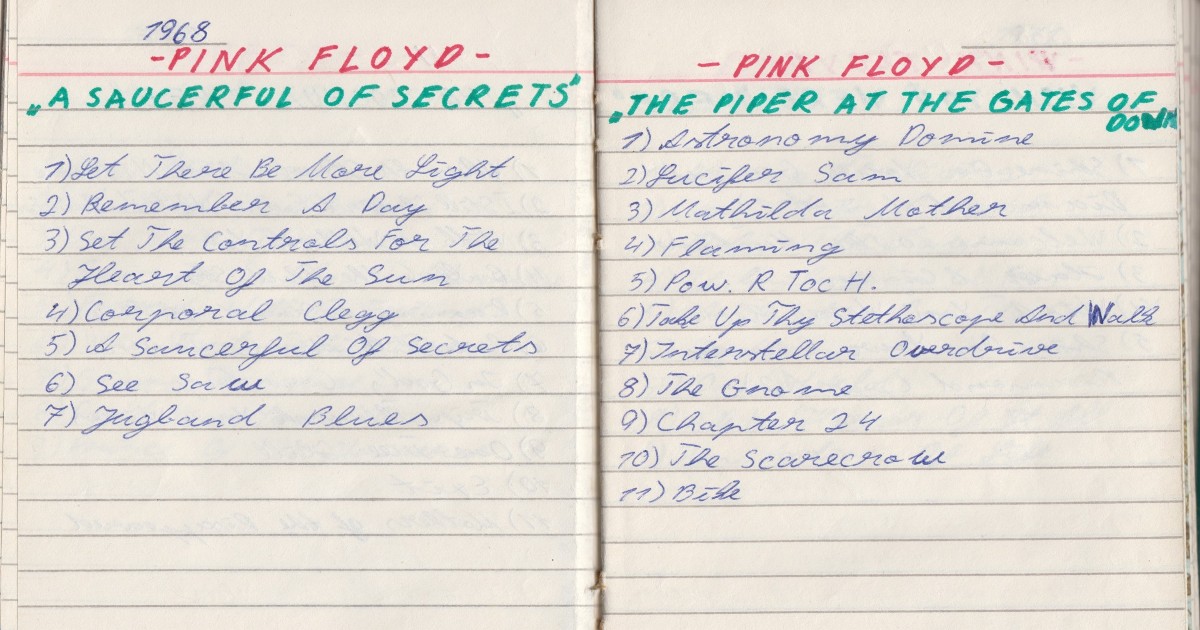 1968
-PINK FLOYD-
„A SAUCERFUL OF SECRETS"
1) Let There Be More Light
2) Remember A Day
3) Set The Controls For The
Heart Of The Sun
4) Corporal Clegg
5) A Saucerful Of Secrets
6) See Saw
7) Jugband Blues
- PINK FLOYD -
„THE PIPER AT THE GATES OF
DOWN
1) Astronomy Domine
2) Lucifer Sam
3) Mathilda Mother
4) Flaming
5) Pow. R Toc H.
6) Take Up Thy Stethoscope And Walk
7) Interstellar Overdrive
8) The Gnome
9) Chapter 24
10) The Scarecrow
11) Bike